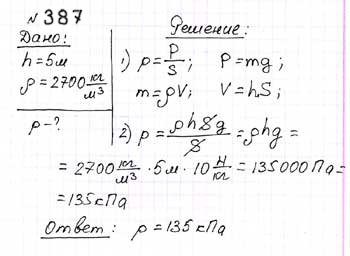 № 387
Дано:
h = 5м
ρ = 2700 кг/м³
p - ?
Решение:
1) p = P/S; P = mg;
m = ρV; V = hS;
2) p = ρhSg/S = ρhg =
= 2700 кг/м³ · 5м · 10 Н/кг = 135000 Па =
= 135 кПа
Ответ: p = 135 кПа